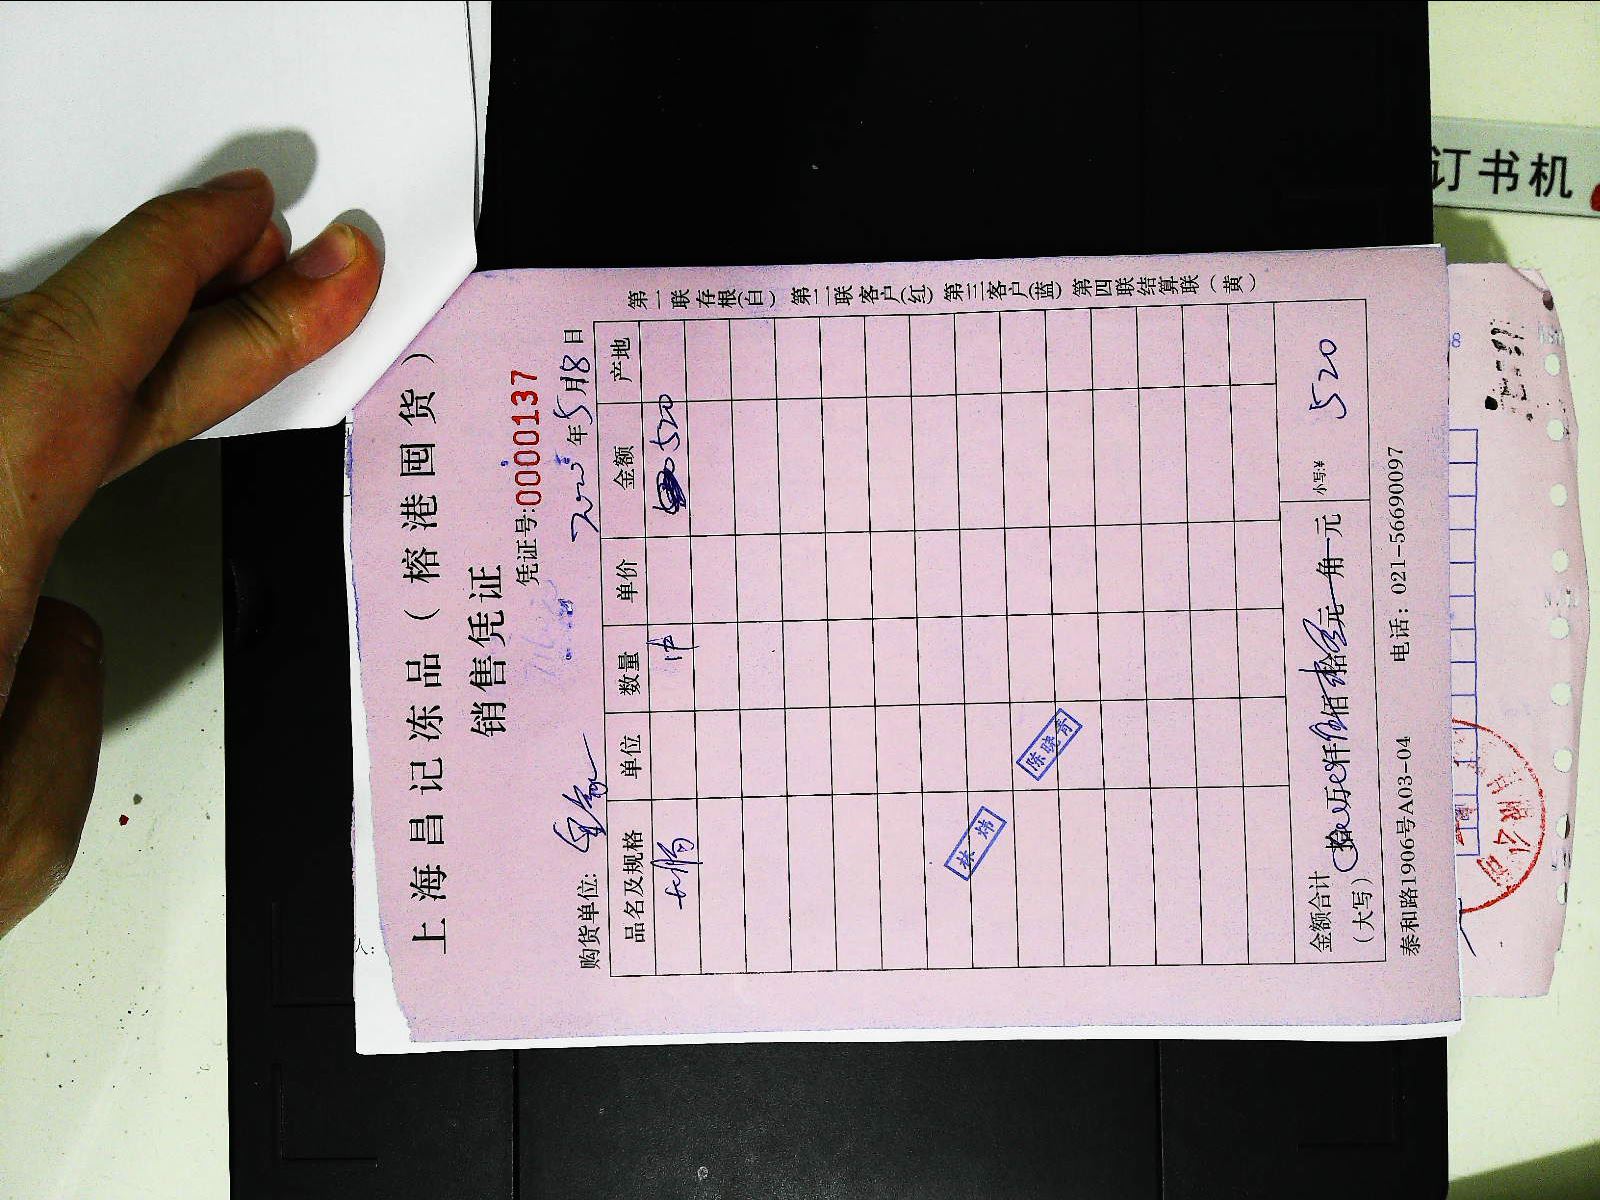 上海昌记冻品（榕港囤货）
销售凭证
凭证号:0000137
购货单位:
年5月18日
品名及规格 单位 数量 单价 金额 产地
1件 520
林婷
陈晓奇
金额合计（大写） 拾 万 仟 佰 拾 元 角 元 小写:¥ 520
泰和路1906号A03-04 电话：021-56690097
第一联存根(白) 第二联客户(红) 第三客户(蓝) 第四联结算联（黄）
订书机
限公司